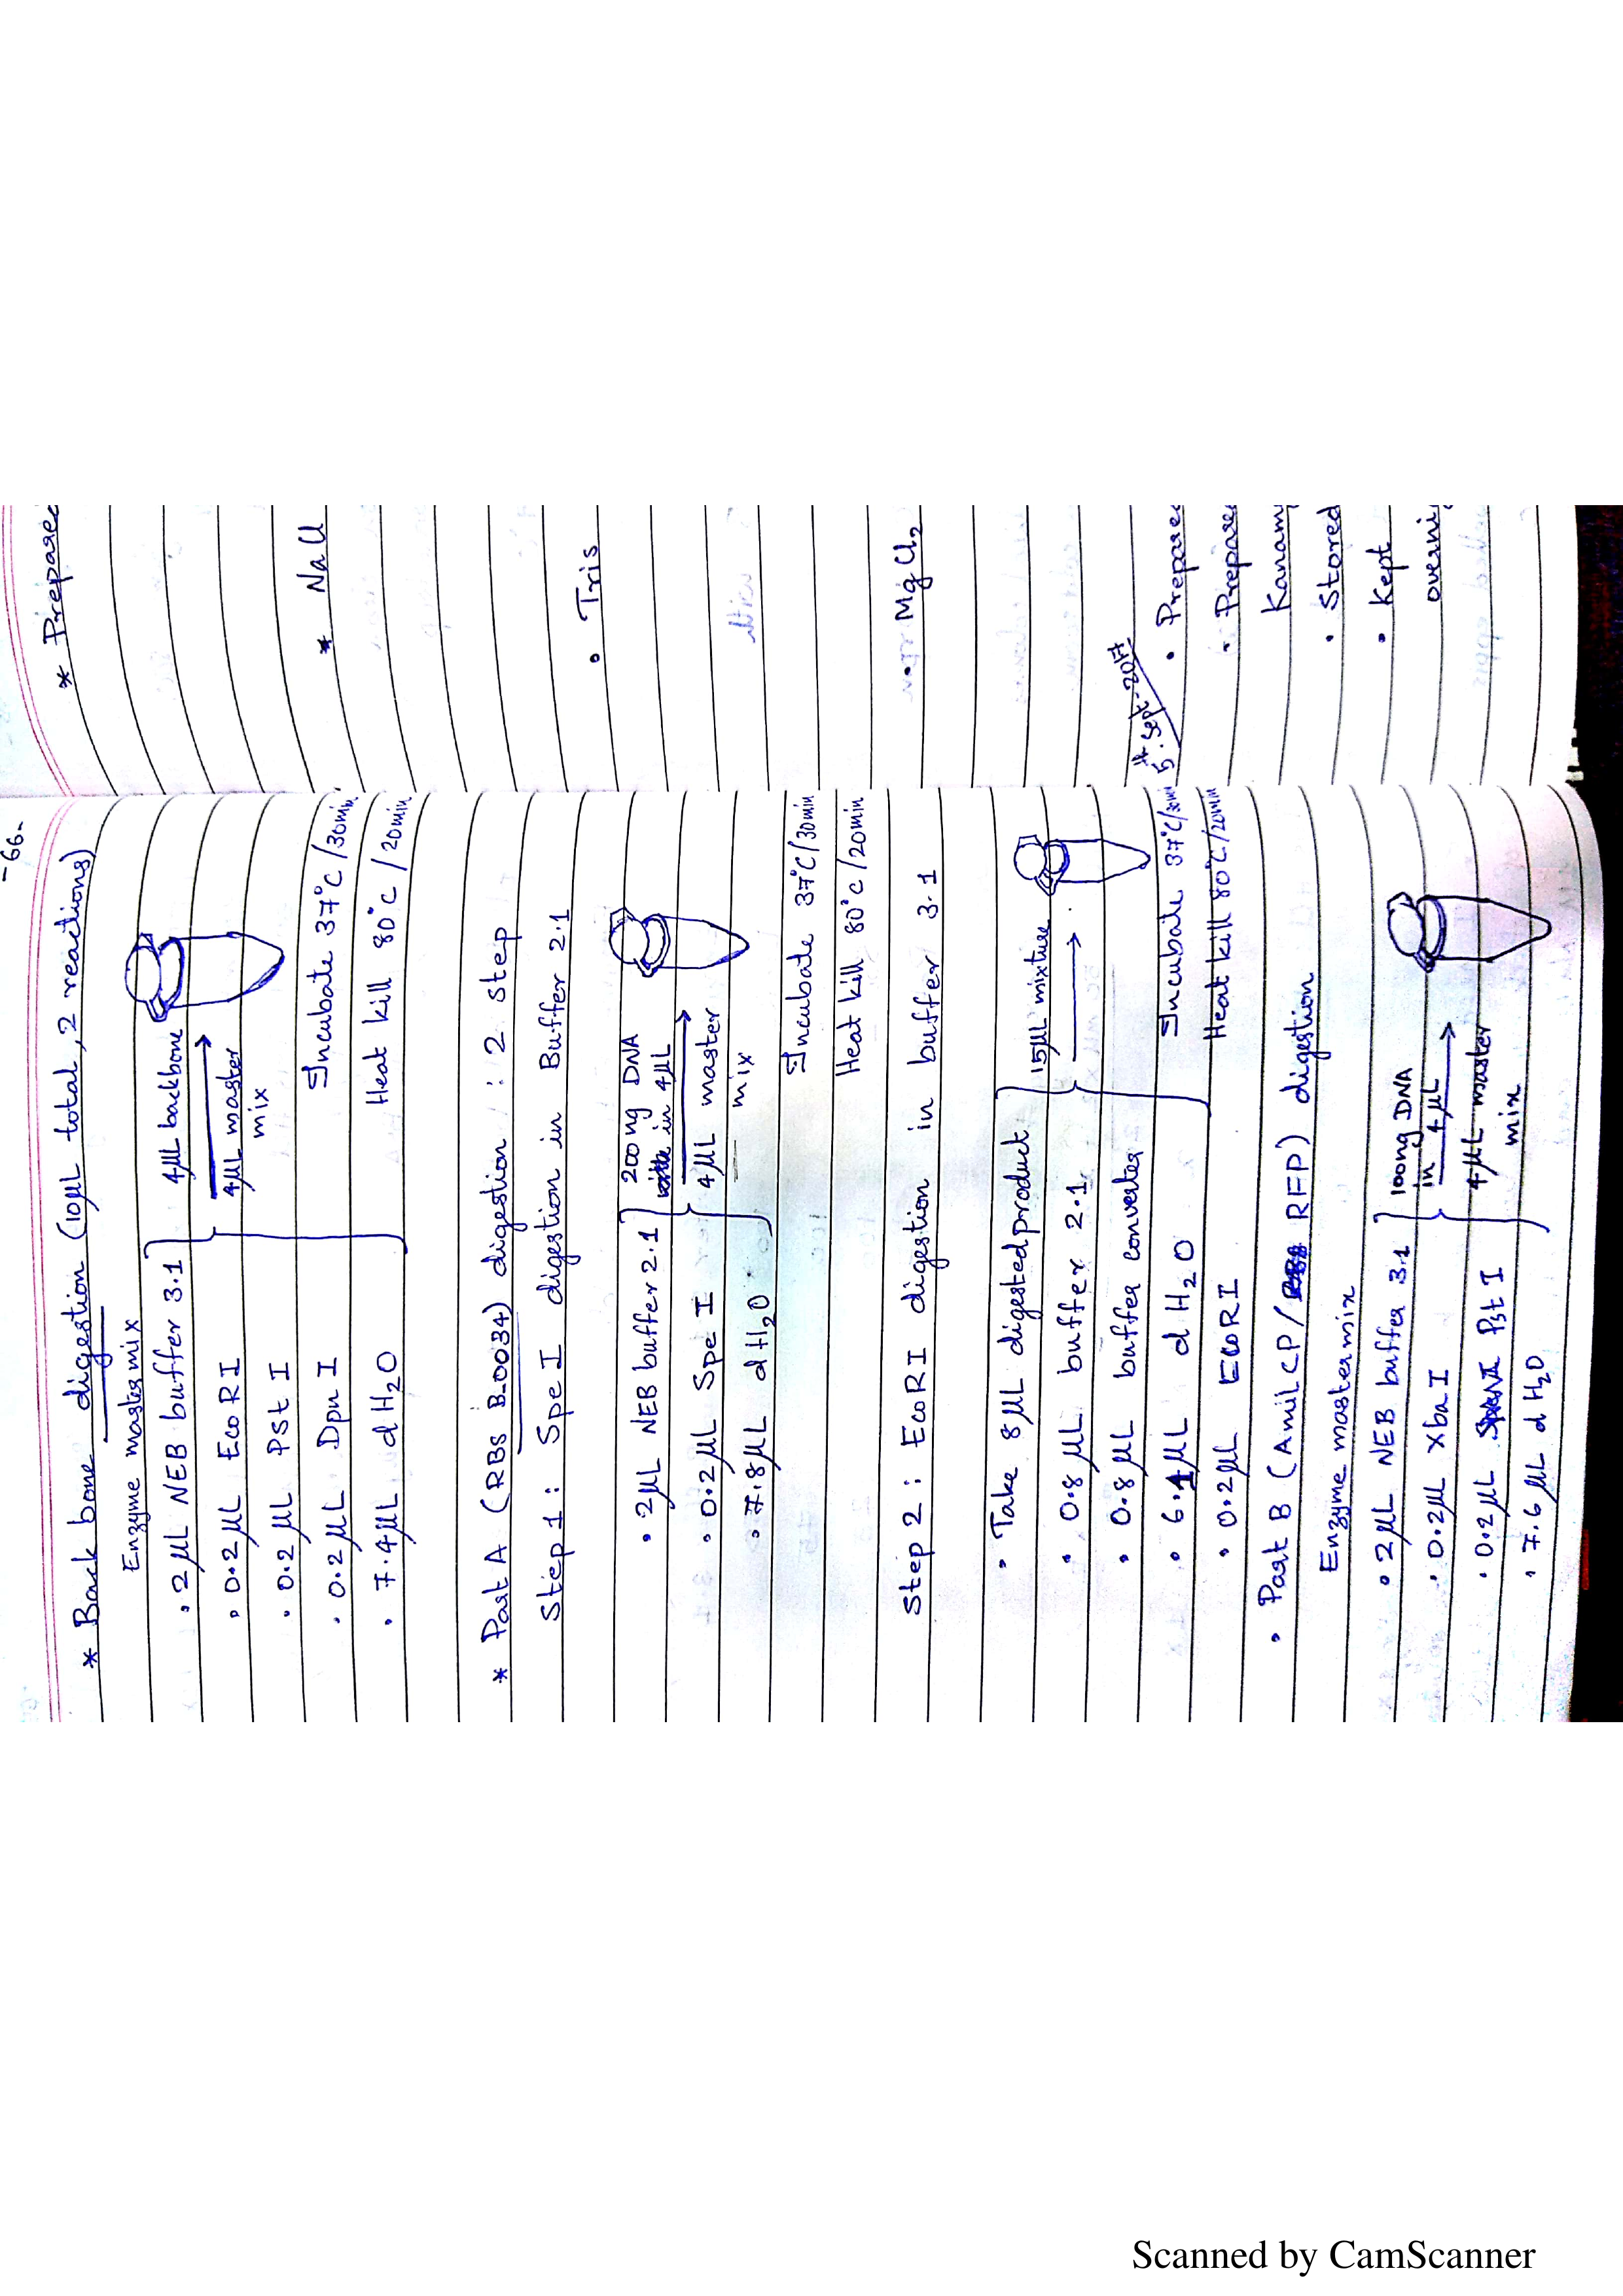 -66-
* Back bone digestion (10µL total, 2 reactions)
Enzyme mastermix
• 2µL NEB buffer 3.1
• 0.2µL EcoRI
• 0.2µL PstI
• 0.2µL DpnI
• 7.4µL dH2O
4µL backbone
4µL master
mix
Incubate 37°C/30min
Heat kill 80°C/20min
* Part A (RBS B-0034) digestion : 2 step
Step 1 : SpeI digestion in Buffer 2.1
• 2µL NEB buffer 2.1
• 0.2µL SpeI
• 7.8µL dH2O
200ng DNA
in 4µL
4µL master
mix
Incubate 37°C/30min
Heat kill 80°C/20min
Step 2 : EcoRI digestion in buffer 3.1
• Take 8µL digested product
• 0.8µL buffer 2.1
• 0.8µL buffer converter
• 6.1µL dH2O
• 0.2µL EcoRI
15µL mixture
Incubate 37°C/30min
Heat kill 80°C/20min
• Part B (AmilCP/ RFP) digestion
Enzyme mastermix
• 2µL NEB buffer 3.1
• 0.2µL XbaI
• 0.2µL PstI
• 7.6µL dH2O
100ng DNA
in 4µL
4µL master
mix
* Prepared
* NaCl
• Tris
• MgCl2
5th Sept-2017
• Prepared
• Prepare
Kanam
• Stored
• Kept
overni
Scanned by CamScanner